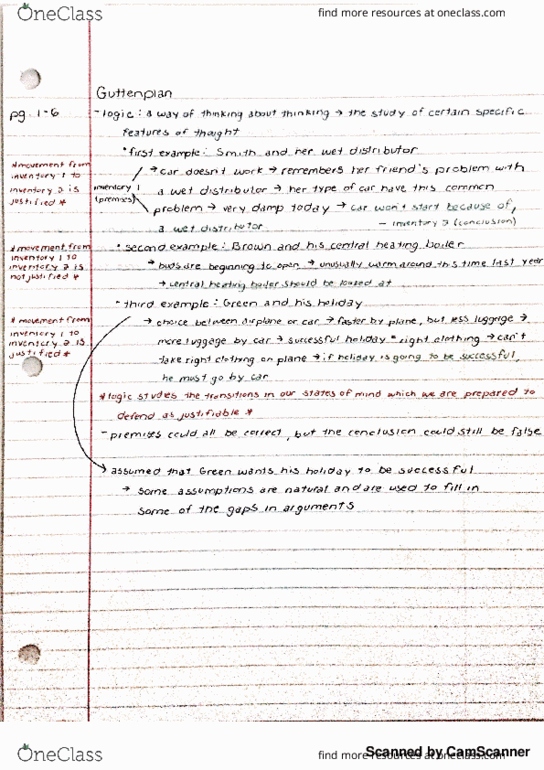 OneClass
find more resources at oneclass.com
Guttenplan
pg. 1-6
- logic : a way of thinking about thinking → the study of certain specific
features of thought
• first example : Smith and her wet distributor
* movement from
inventory 1 to
inventory 2 is
justified *
inventory 1
(premises)
→ car doesn't work → remembers her friend's problem with
a wet distributor → her type of car have this common
problem → very damp today → car won't start because of,
a wet distributor
- inventory 2 (conclusion)
* movement from
inventory 1 to
inventory 2 is
not justified *
• second example : Brown and his central heating boiler
→ buds are beginning to open → unusually warm around this time last year
→ central heating boiler should be looked at
• third example : Green and his holiday
* movement from
inventory 1 to
inventory 2 is
justified *
→ choice between airplane or car → faster by plane, but less luggage →
more luggage by car → successful holiday = right clothing → can't
take right clothing on plane → if holiday is going to be successful,
he must go by car
* logic studies the transitions in our states of mind which we are prepared to
defend as justifiable *
- premises could all be correct, but the conclusion could still be false
assumed that Green wants his holiday to be successful
→ some assumptions are natural and are used to fill in
some of the gaps in arguments
OneClass
find more resources at oneclass.com
Scanned by CamScanner